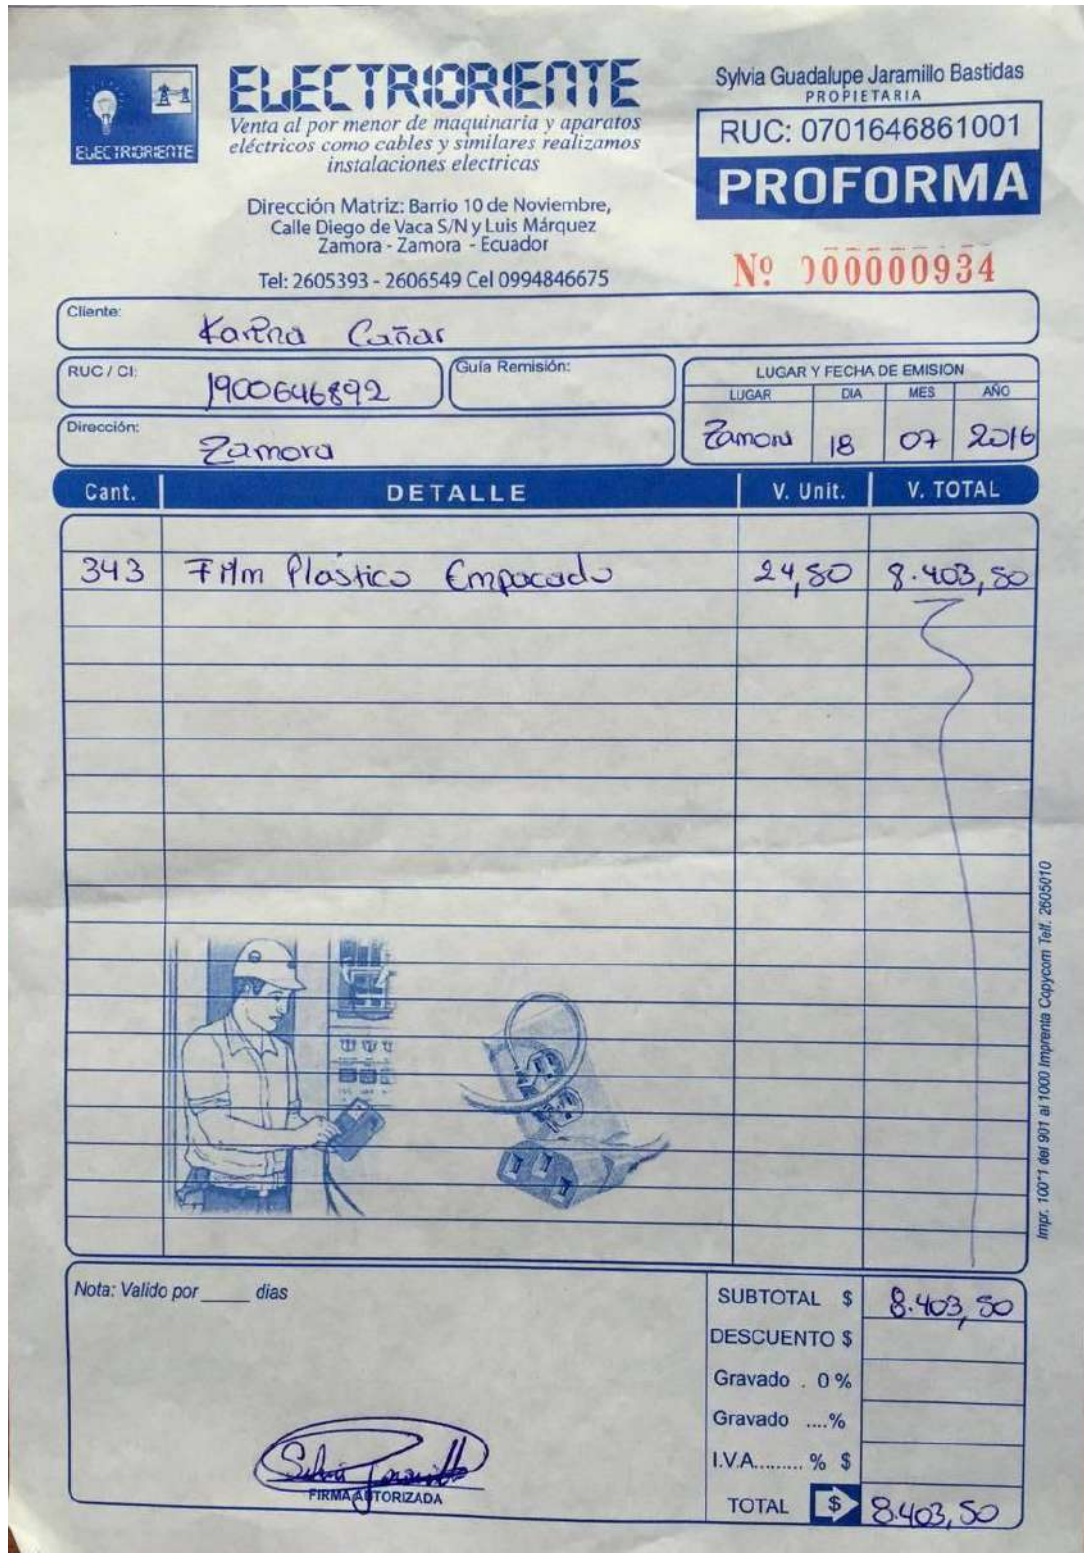 ELECTRIORIENTE
ELECTRIORIENTE
Venta al por menor de maquinaria y aparatos
eléctricos como cables y similares realizamos
instalaciones electricas
Dirección Matriz: Barrio 10 de Noviembre,
Calle Diego de Vaca S/N y Luis Márquez
Zamora - Zamora - Ecuador
Tel: 2605393 - 2606549 Cel 0994846675
Sylvia Guadalupe Jaramillo Bastidas
PROPIETARIA
RUC: 0701646861001
PROFORMA
Nº 000000934
Cliente: Karina Cañar
RUC / CI: 1900646892
Guía Remisión:
LUGAR Y FECHA DE EMISION
LUGAR DIA MES AÑO
Zamora 18 07 2016
Dirección: Zamora
Cant. DETALLE V. Unit. V. TOTAL
343 Film Plástico Empacado 24,50 8.403,50
Impr. 100*1 del 901 al 1000 Imprenta Copycom Telf. 2605010
Nota: Valido por ____ dias
SUBTOTAL $ 8.403,50
DESCUENTO $
Gravado . 0 %
Gravado ....%
I.V.A......... % $
TOTAL $ 8.403,50
FIRMA AUTORIZADA